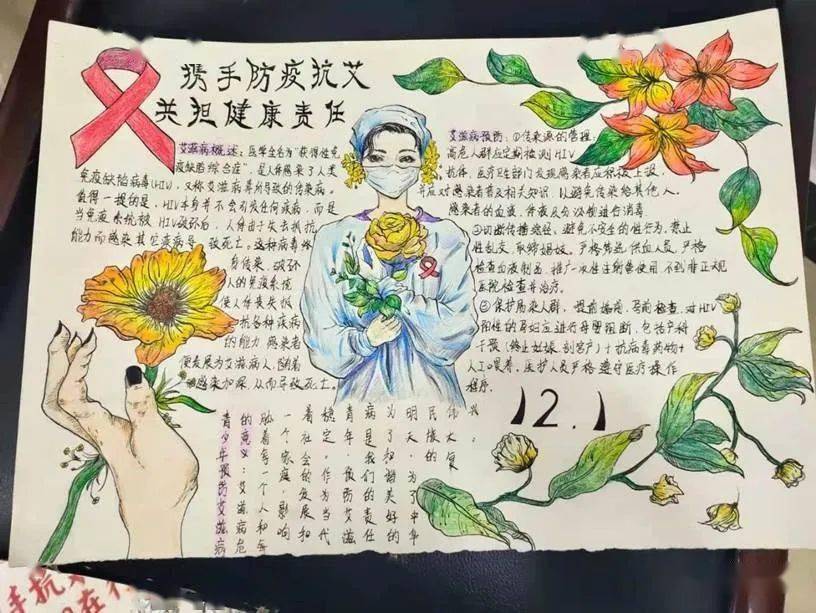 携手防疫抗艾
共担健康责任
艾滋病概述：医学全名为"获得性免
疫缺陷综合症"，是人体感染了人类
免疫缺陷病毒(HIV)，又称艾滋病毒所导致的传染病。
值得一提的是，HIV本身并不会引发任何疾病，而是
当免疫系统被HIV破坏后，人体由于失去抵抗
能力而感染其它疾病导致死亡。这种病毒终
身传染，破坏
人的免疫系统
使人体丧失抵
抗各种疾病
的能力 感染者
便发展为艾滋病人，随着
感染加深，从而导致死亡。
艾滋病预防：①传染源的管理：
高危人群应定期检测HIV
抗体，医疗卫生部门发现感染者应积极上报，
并应对感染者普及相关知识，以避免传染给其他人。
感染者的血液，体液及分泌物应进行消毒。
②切断传播途径，避免不安全的性行为，禁止
性乱交，取缔娼妓。严格筛选供血人员，严格
检查血液制品，推广一次性注射器使用 不到非正规
医院检查并治疗。
③保护易感人群，提前婚前，孕前检查，对HIV
阳性的孕妇应进行母婴阻断，包括产科
干预(终止妊娠，剖宫产)+抗病毒药物+
人工喂养，医护人员严格遵守医疗操作
程序.
12.1
青少年预防艾滋病
的意义：艾滋病危
胁着每一个人和每
一个家庭，影响
着社会的发展和
稳定。作为当代
青年，预防艾滋
病是我们的责任
为了和谐美好的
明天，为了中华
民族的伟大复
兴。